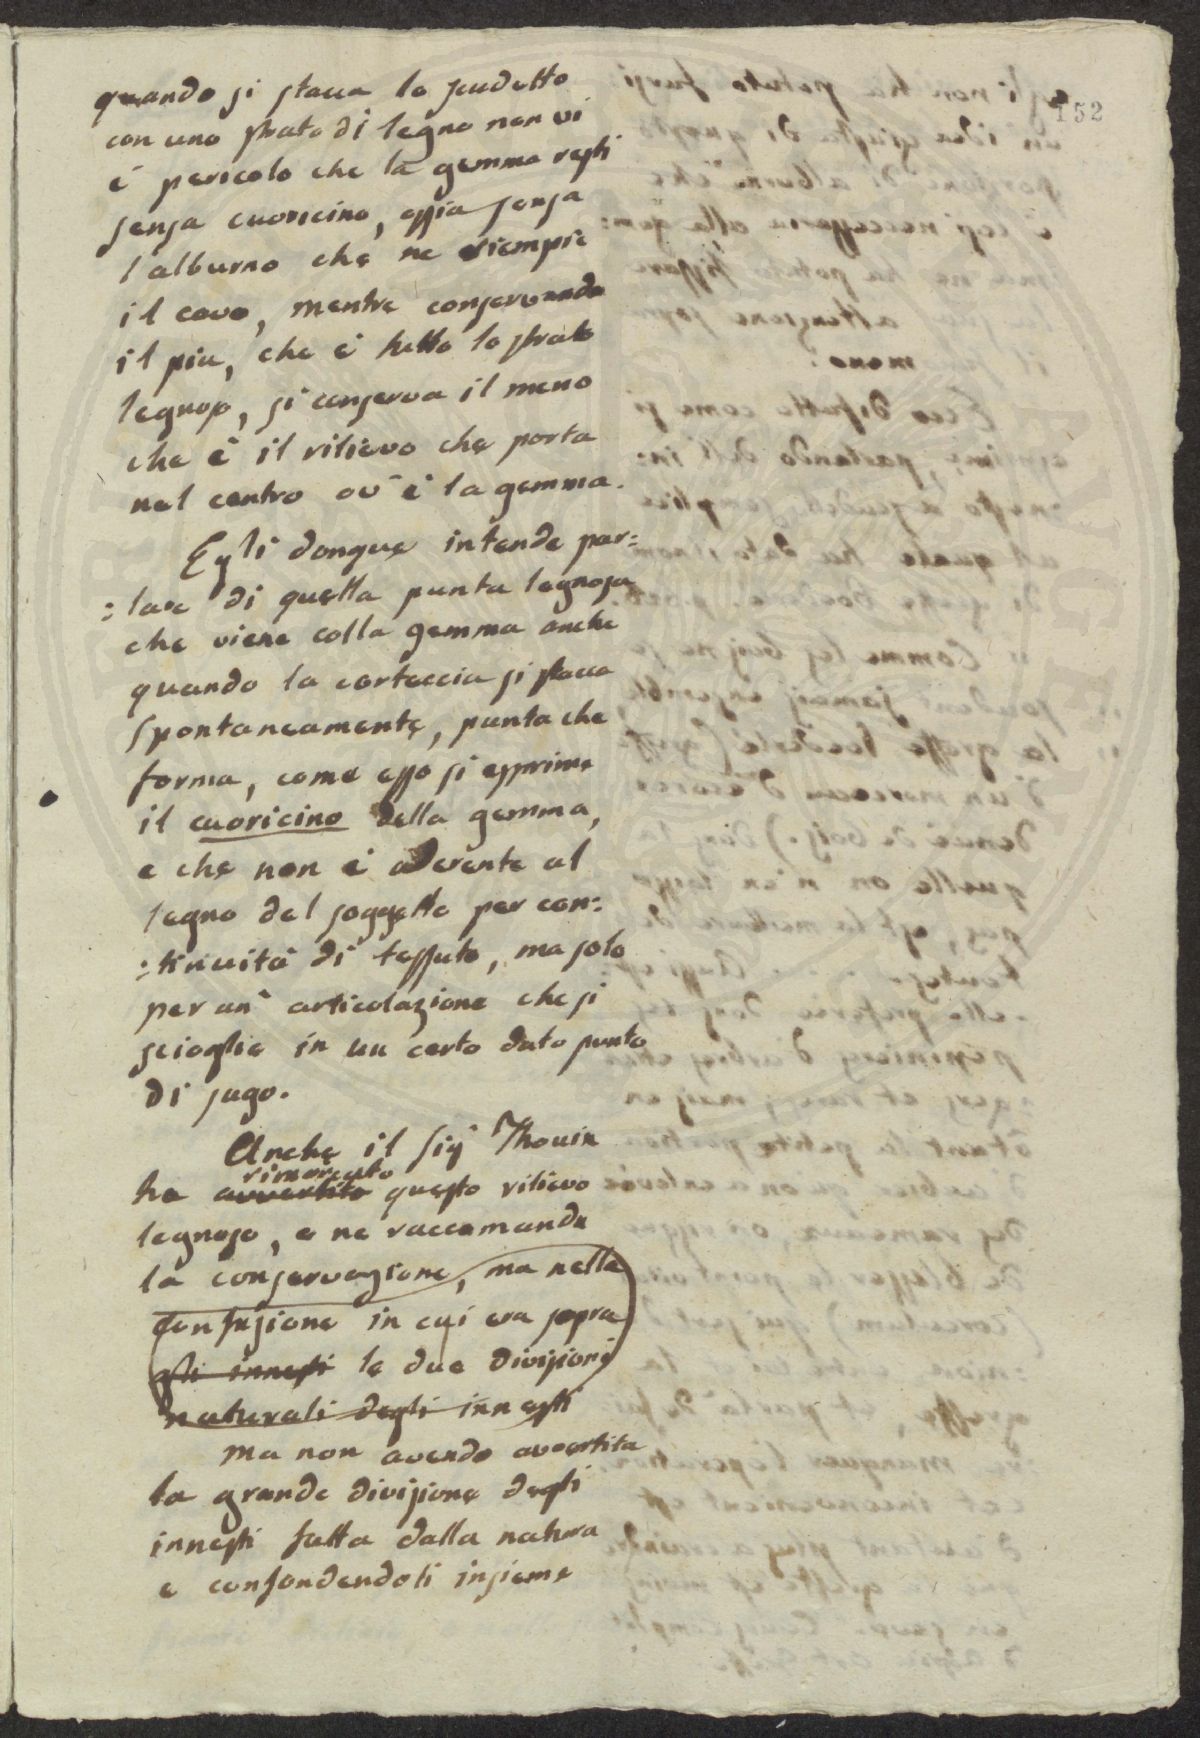 152
quando si stacca lo scudetto
con uno strato di legno non vi
è pericolo che la gemma resti
senza cuoricino, ossia senza
l'alburno che ne riempie
il cavo, mentre conservando
il piu, che è tutto lo strato
legnoso, si conserva il meno
che è il rilievo che porta
nel centro ov'è la gemma.
Egli donque intende par=
=lare di quella punta legnosa
che viene colla gemma anche
quando la corteccia si stacca
spontaneamente, punta che
forma, come esso si esprime
il cuoricino della gemma,
e che non è aderente al
legno del soggetto per con=
=tinuità di tessuto, ma solo
per un' articolazione che si
scioglie in un certo dato punto
di sugo.
Anche il Sig Thouin
rimarcato
ha avvertito questo rilievo
legnoso, e ne raccomanda
la conservazione, ma nella
confusione in cui era sopra
gli innesti le due divisioni
naturali degli innesti
ma non avendo avvertita
la grande divisione degli
innesti fatta dalla natura
e confondendoli insieme